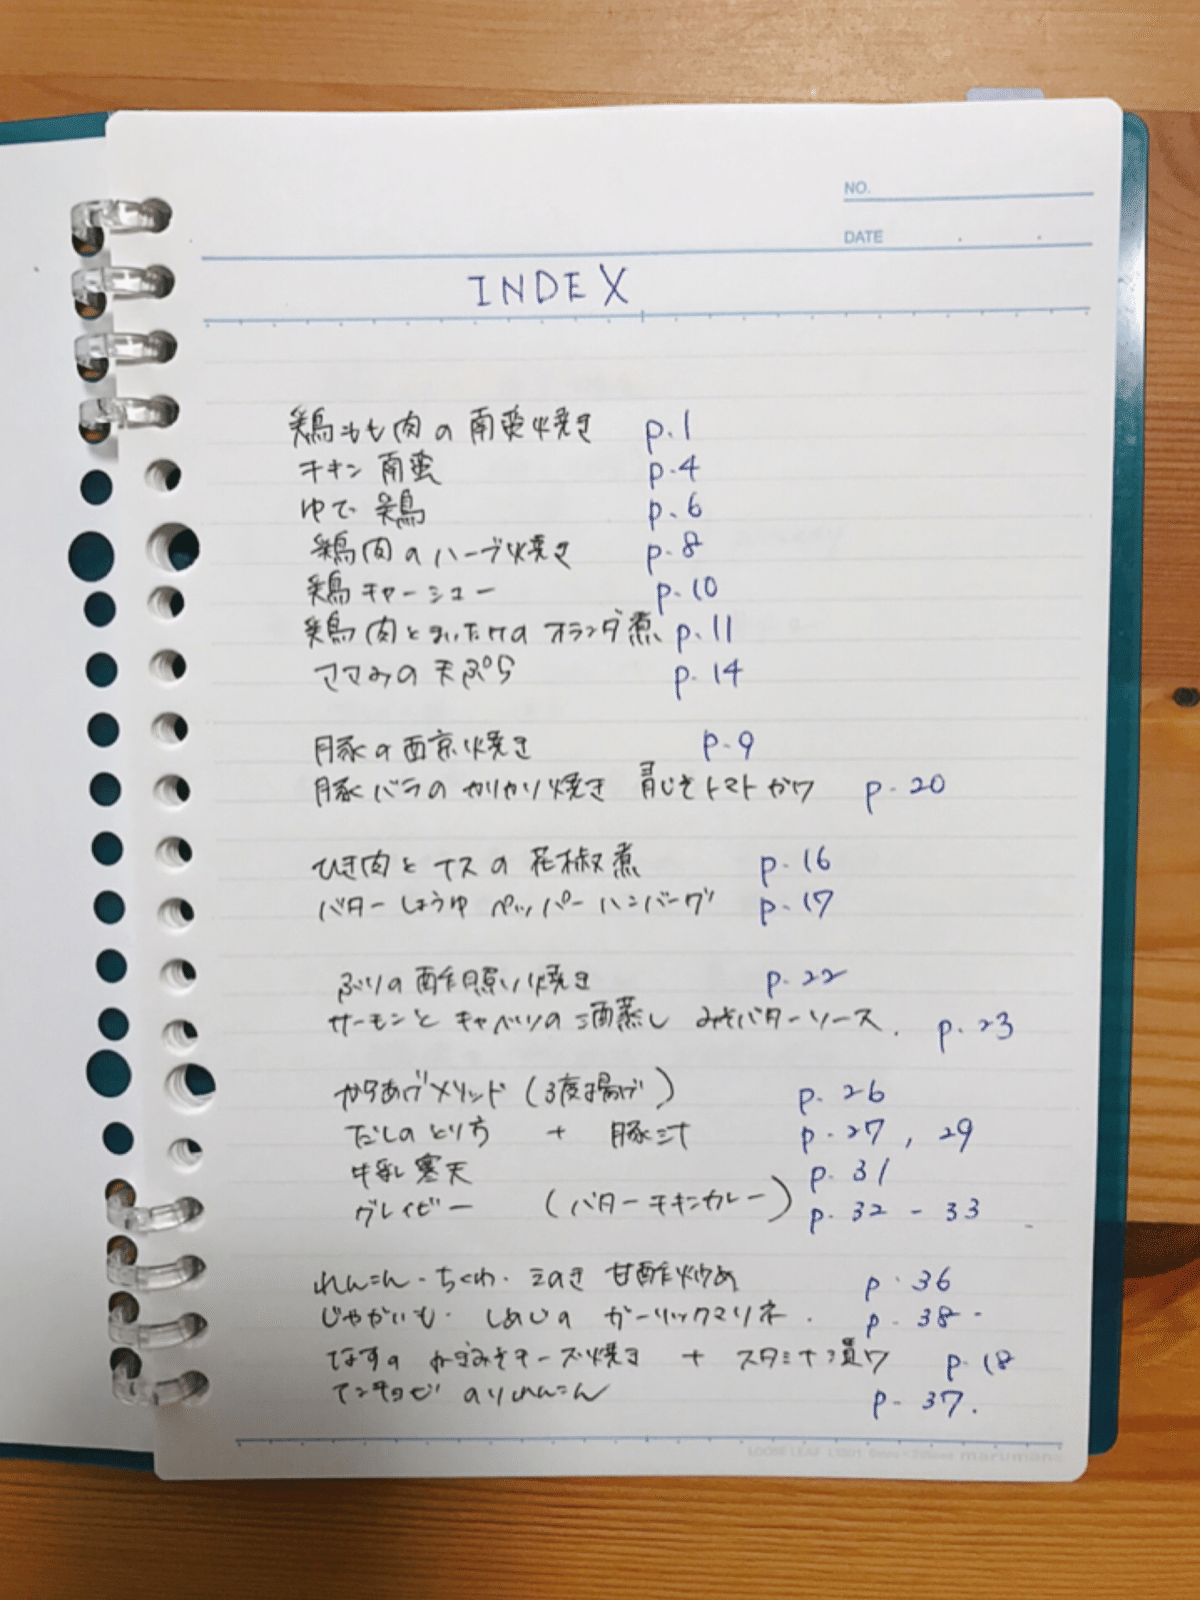 NO.
DATE
INDEX
鶏もも肉の南蛮焼き p.1
チキン南蛮 p.4
ゆで鶏 p.6
鶏肉のハーブ焼き p.8
鶏チャーシュー p.10
鶏肉とまいたけのオランダ煮 p.11
ササみの天ぷら p.14
豚の西京焼き p.9
豚バラのカリカリ焼き 青じそトマトがけ p.20
ひき肉とナスの花椒煮 p.16
バターしょうゆペッパーハンバーグ p.17
ぶりの酢照り焼き p.22
サーモンとキャベツの酒蒸し みそバターソース. p.23
からあげメソッド (3度揚げ) p.26
だしのとり方 + 豚汁 p.27, 29
牛乳寒天 p.31
グレイビー (バターチキンカレー) p.32-33
れんこん・ちくわ・えのき 甘酢炒め p.36
じゃがいも・しめじのガーリックマリネ. p.38-
なすのねぎみそチーズ焼き + スタミナ漬け p.18
アンチョビのりれんこん p.37.
LOOSE LEAF L1201 maruman